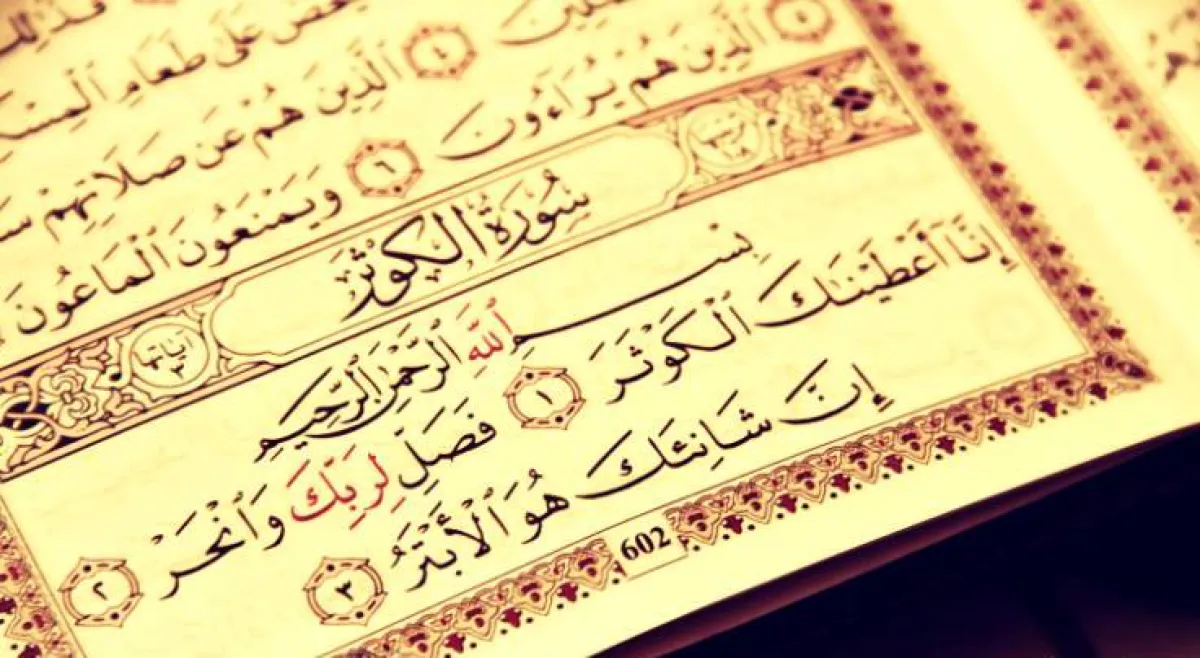 عَلَىٰ طَعَامِ ٱلْمِسْكِينِ
٤ ٱلَّذِينَ هُمْ عَن صَلَاتِهِمْ
٥ ٱلَّذِينَ هُمْ يُرَآءُونَ ٦ وَيَمْنَعُونَ ٱلْمَاعُونَ
سُورَةُ الكَوْثَرِ آيَاتُهَا ٣
بِسْمِ ٱللَّهِ ٱلرَّحْمَٰنِ ٱلرَّحِيمِ
إِنَّآ أَعْطَيْنَٰكَ ٱلْكَوْثَرَ ١ فَصَلِّ لِرَبِّكَ وَٱنْحَرْ ٢
إِنَّ شَانِئَكَ هُوَ ٱلْأَبْتَرُ ٣
602